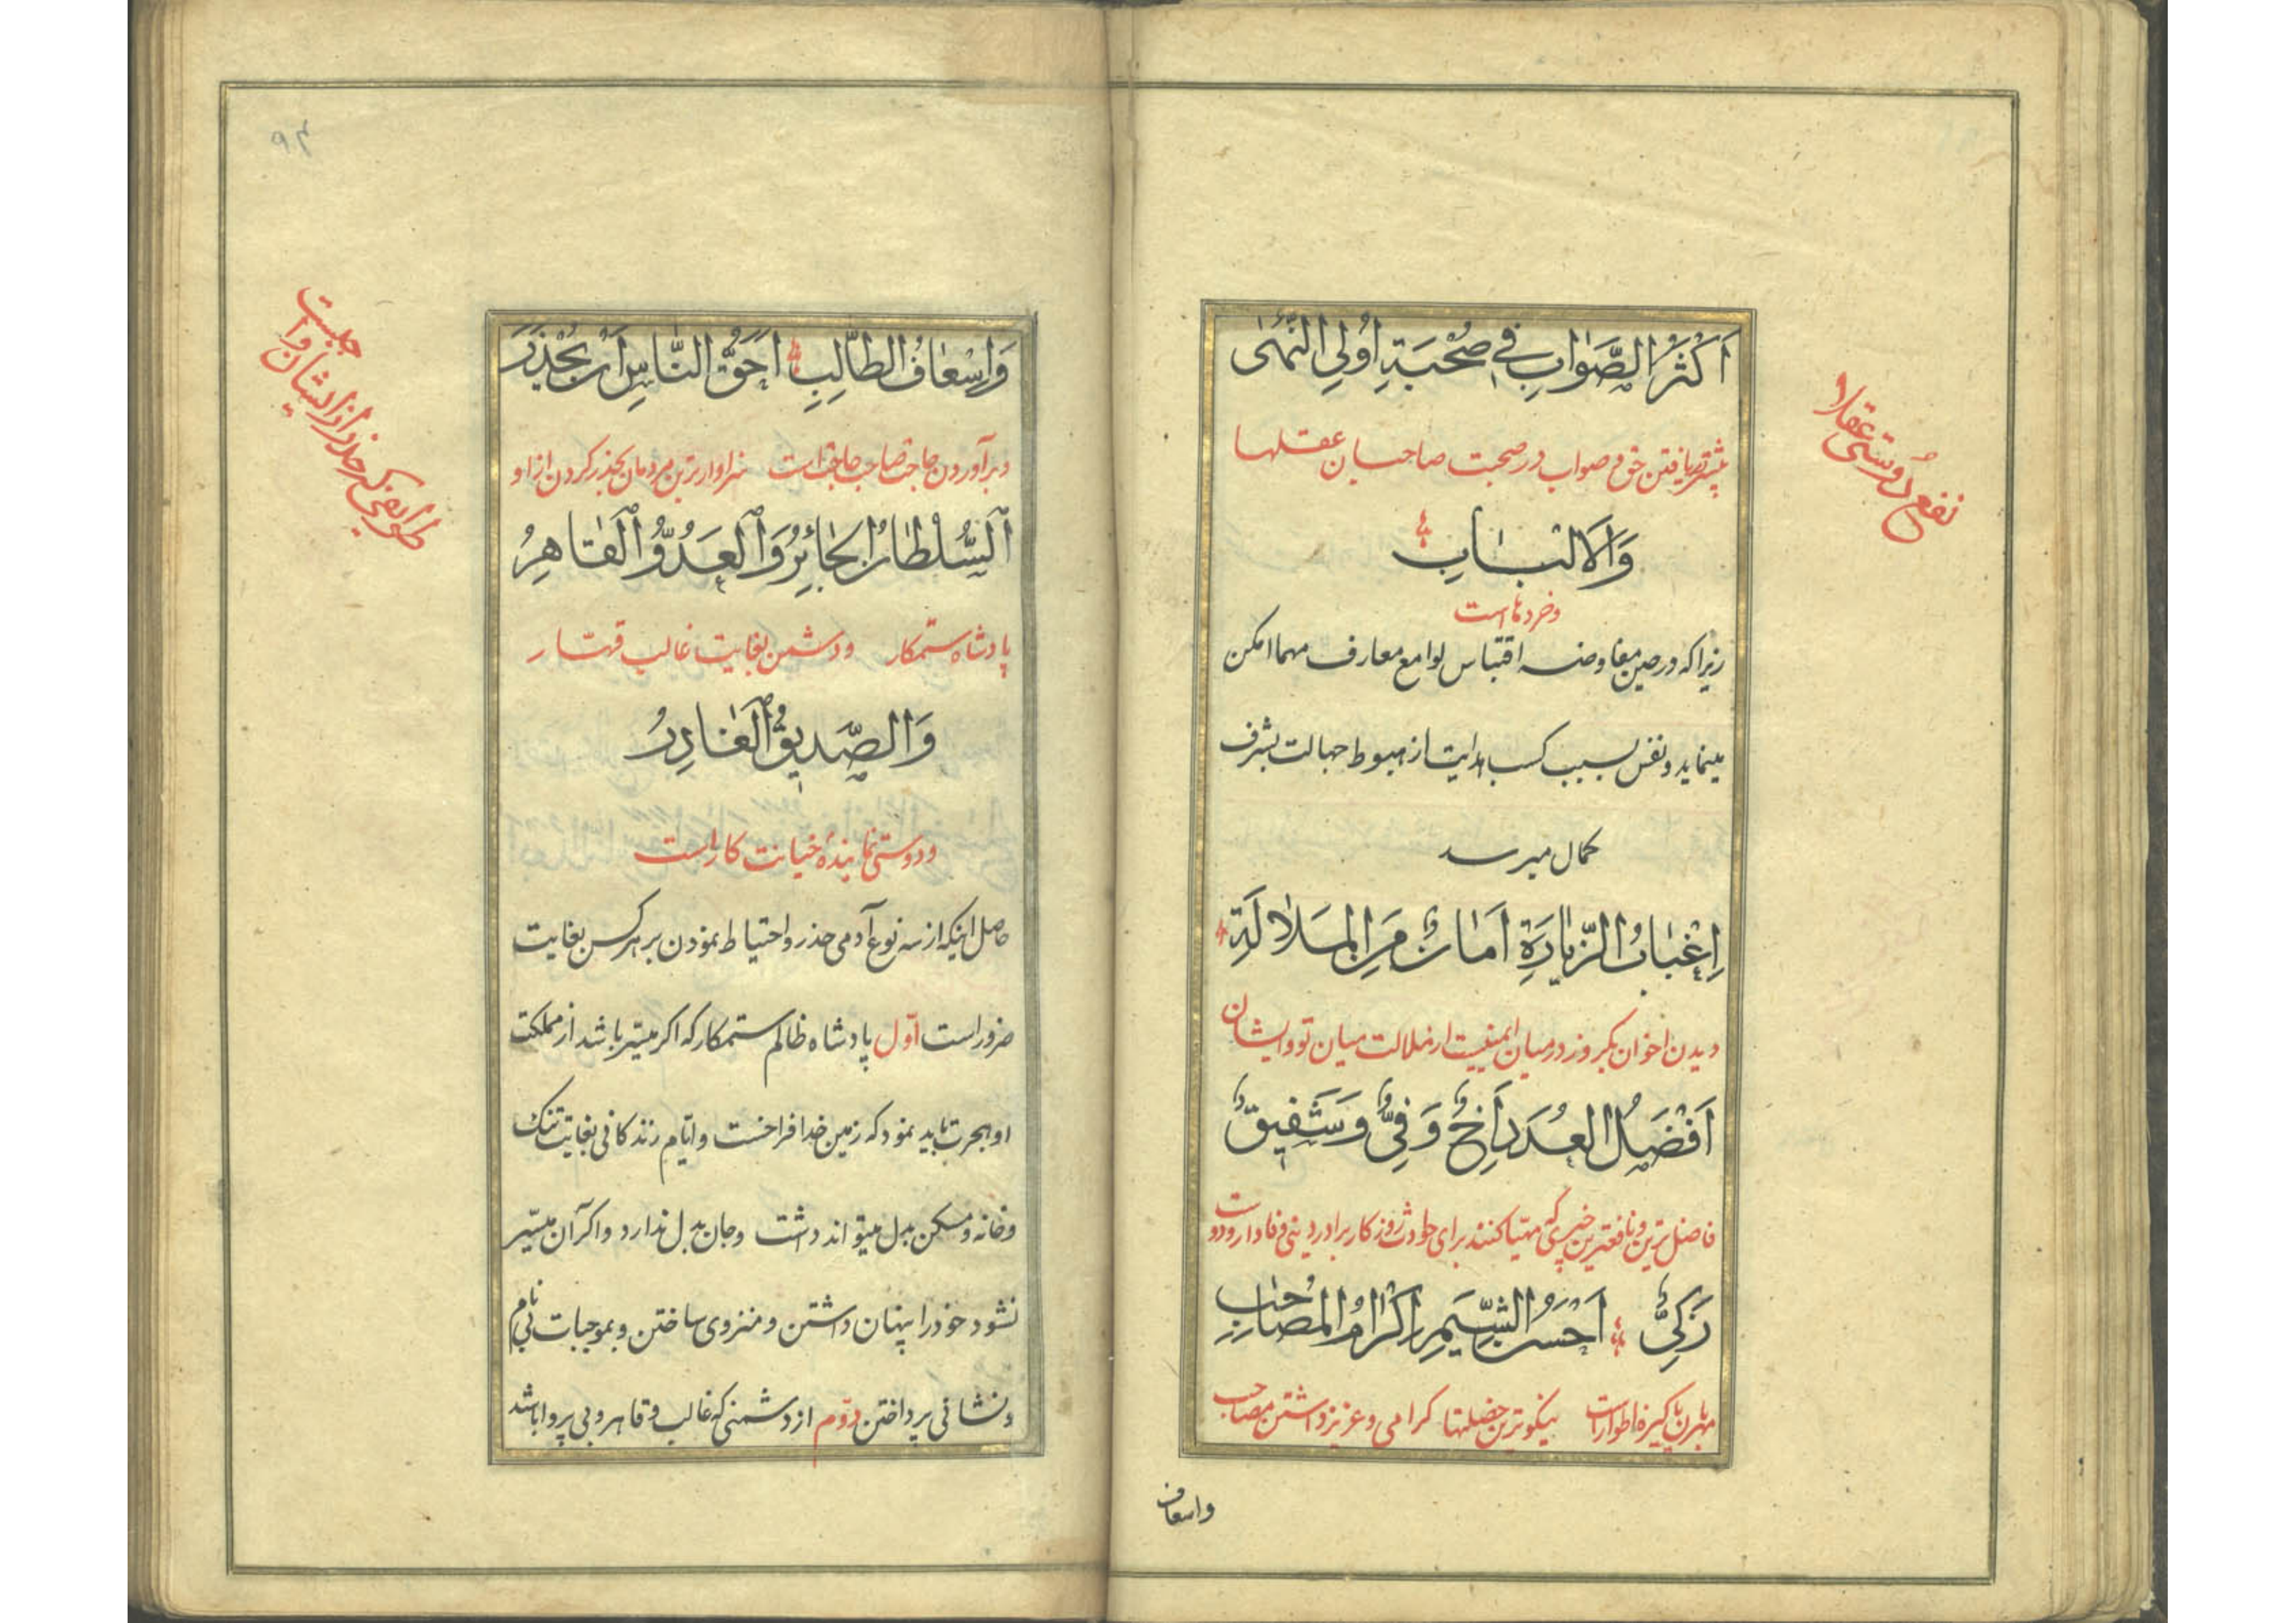 اَكْثَرُ الصَّوابِ في صُحْبَةِ اُولِي النُّهىٰ
بیشتر یافتن خوی صواب در صحبت صاحبان عقلها
وَالاَلْبابِ
و خردهاست
زیرا که در حین مفاوضه اقتباس لوامع معارف مهما امکن
مینماید و نفس بسبب کسب هدایت از هبوط جهالت بشرف
کمال میرسد
اِغْبابُ الزِّيارَةِ اَمانٌ مِنَ المَلالَةِ
دیدن اخوان یکروز در میان ایمنیست از ملالت میان تو و ایشان
اَفْضَلُ العُدَدِ اَخٌ وَفِيٌّ وَشَفيقٌ
فاضل ترین و نافعترین چیزی که مهیا کنند برای حوادث روزکار برادر دینی وفادار و دوست
زَكِيٌّ اَحْسَنُ الشِّيَمِ اِكْرامُ المُصاحِبِ
مهربان پاکیزه اطوار است نیکوترین خصلتها کرامی و عزیز داشتن مصاحب
نفع دوستی عقلا
واسعاف
وَاِسْعافُ الطّالِبِ اَحَقُّ النّاسِ اَنْ يُحْذَرَ
و برآوردن حاجت صاحب حاجت است سزاوارترین مردمان بحذر کردن از او
اَلسُّلْطانُ الجائِرُ وَالْعَدُوُّ الْقاهِرُ
پادشاه ستمکار و دشمن بغایت غالب قهّار
وَالصَّديقُ الْغادِرُ
و دوستی نماینده خیانت کار است
حاصل اینکه از سه نوع آدمی حذر و احتیاط نمودن بر هر کس بغایت
ضرور است اوّل پادشاه ظالم ستمکار که اکر میسّر باشد از مملکت
او هجرت باید نمود که زمین خدا فراخست و ایّام زندکانی بغایت تنک
و خانه و مسکن بدل میتواند داشت و جان بدل ندارد و اکر آن میسّر
نشود خود را پنهان داشتن و منزوی ساختن و بموجبات بی نامی
و نشانی پرداختن دوّم از دشمنی که غالب و قاهر و بی پروا باشد
طوایفی که حذر از ایشان واجبست
۹۴